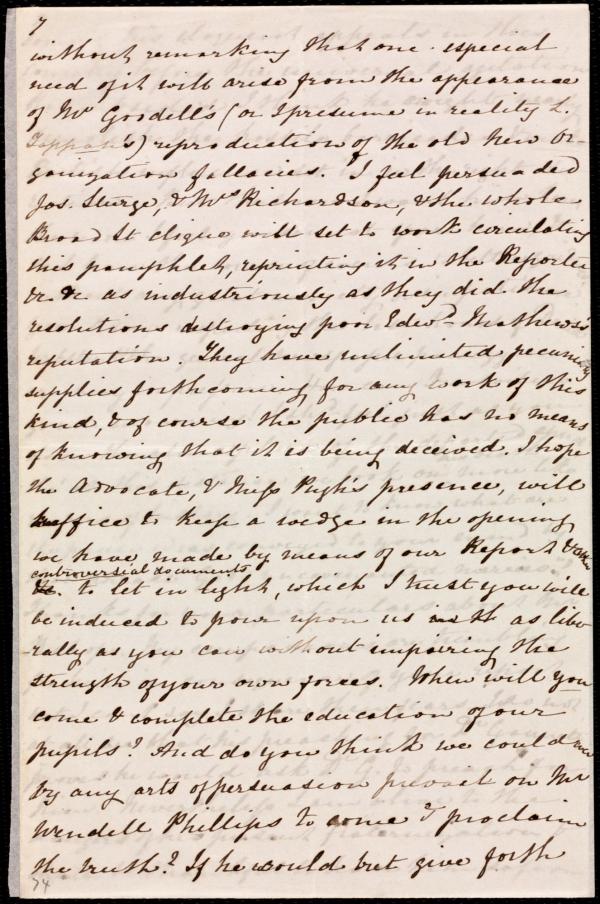 7
without remarking that one especial
need of it will arise from the appearance
of Mr Goodell's (or I presume in reality L.
Tappan's) reproduction of the old New Or-
ganization fallacies. I feel persuaded
Jos. Sturge, & Mrs Richardson, & the whole
Broad St clique will set to work circulating
this pamphlet, reprinting it in the Reporter
&c. &c. as industriously as they did the
resolutions destroying poor Edwd Mathews's
reputation. They have unlimited pecuniary
supplies forthcoming for any work of this
kind, & of course the public has no means
of knowing that it is being deceived. I hope
the Advocate, & Miss Pugh's presence, will
suffice to keep a wedge in the opening
we have made by means of our Report & other
controversial documents
&c. to let in light, which I trust you will
be induced to pour upon us as libe-
-rally as you can without impairing the
strength of your own forces. When will you
come & complete the education of our
pupils? And do you think we could
by any arts of persuasion prevail on Mr
Wendell Phillips to come & proclaim
the truth? If he would but give forth
74